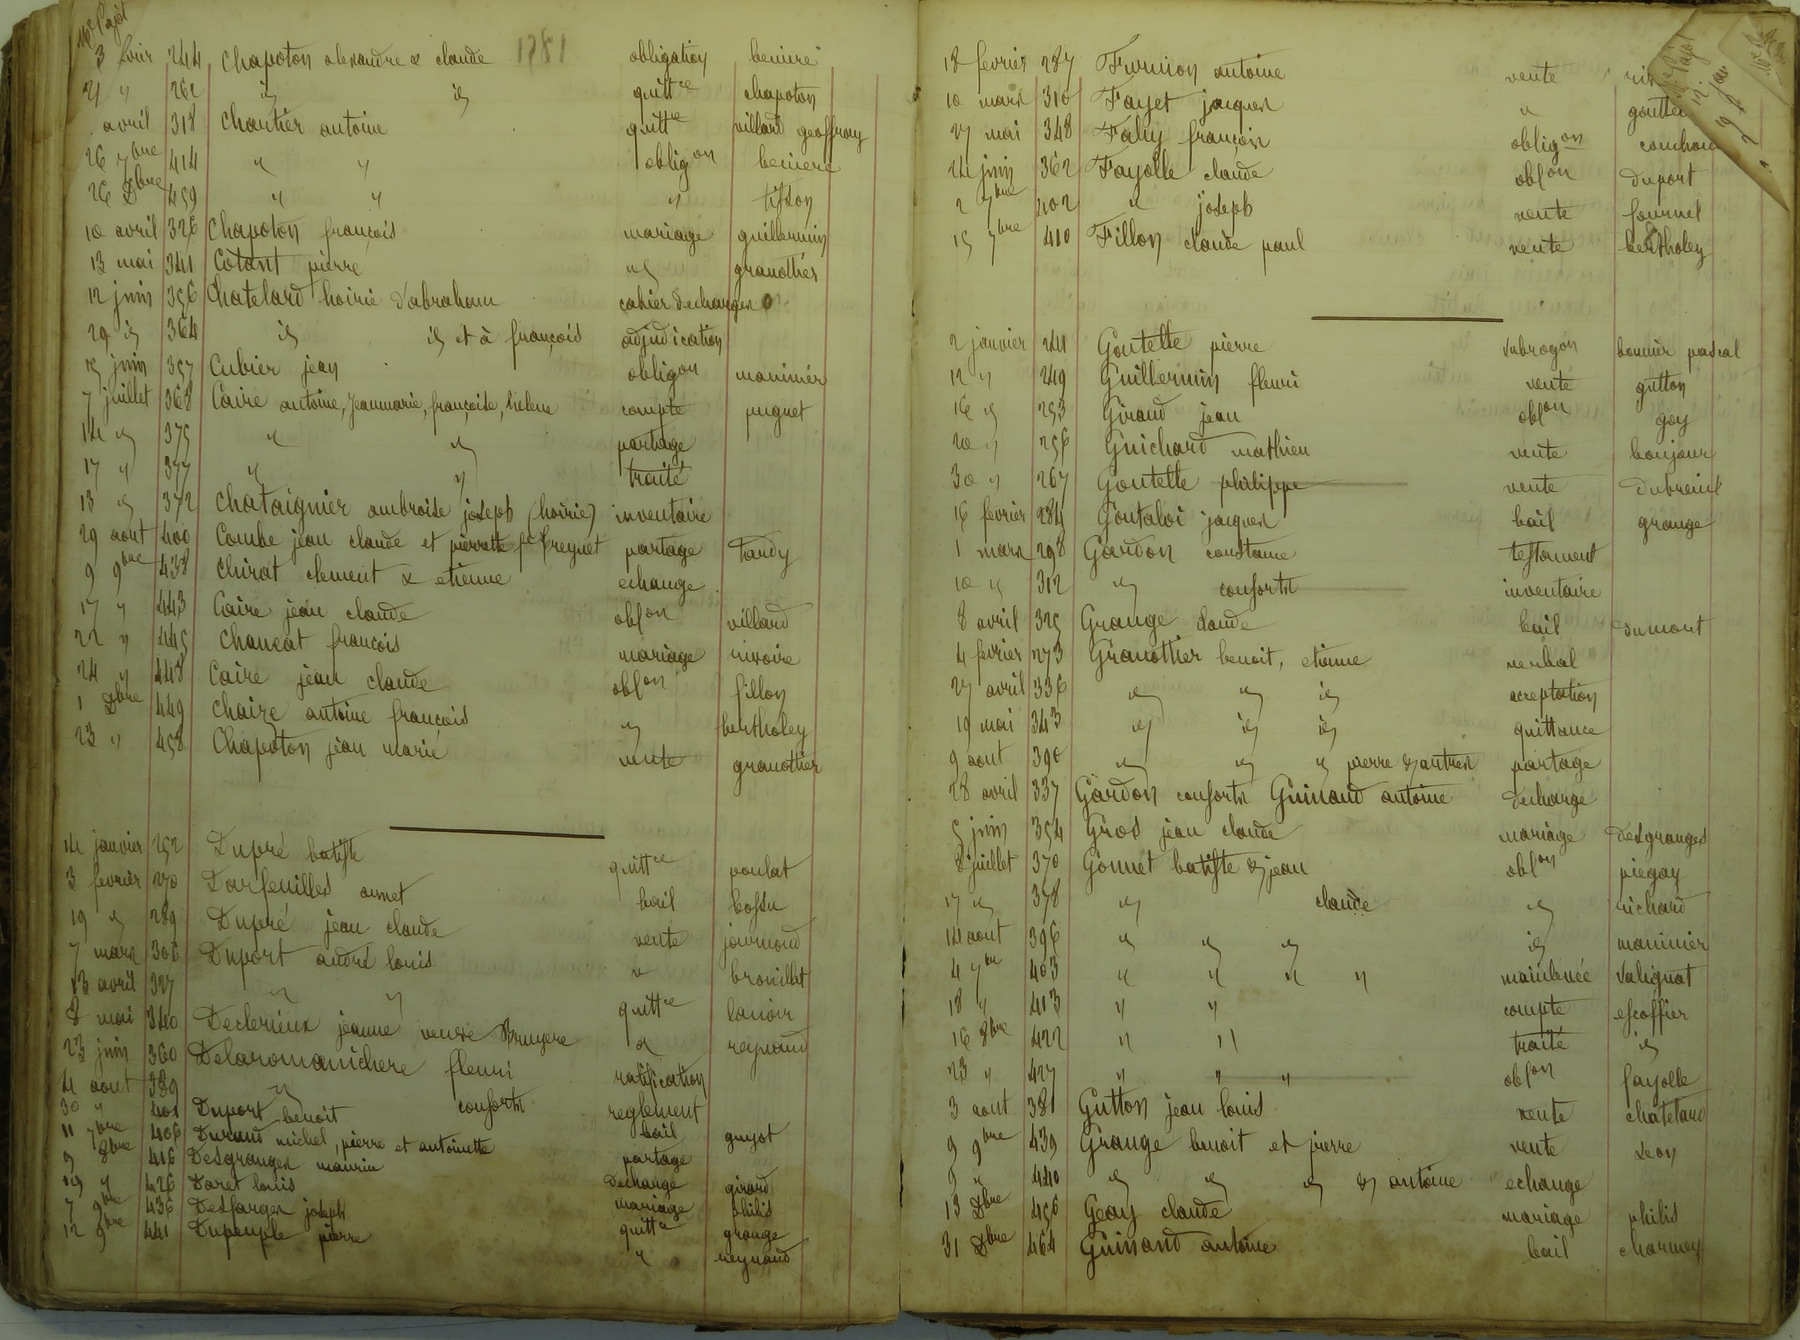 Me Pajot
1781
3 fevrier 244 Chapoton alexandre & claude obligation beniere
21 " 262 id id quittce chapoton
avril 318 Chartier antoine quittce villard geoffray
26 7bre 414 " " obligon beniere
26 Dbre 459 " " " tisson
10 avril 326 Chapoton françois mariage guillermin
13 mai 341 Cotant pierre id granottier
12 juin 356 Chatelard hoirie d'abraham cahier decharges
29 id 364 id id et à françois adjudication
15 juin 357 Cubier jean obligon moninier
7 juillet 368 Caire antoine, jeanmarie, françoise, helene compte puguet
14 id 375 " " partage
17 " 377 " " traité
13 id 372 Chataignier ambroise joseph (hoirie) inventaire
29 aout 400 Combe jean claude et pierrette fe freynet partage tardy
9 9bre 438 Chirat clement & etienne echange
17 " 443 Caire jean claude oblon villard
22 " 445 Chancat françois mariage rivoire
24 " 448 Caire jean claude oblon fillon
1 Dbre 449 Chaize antoine françois id bertholey
23 " 458 Chapoton jean marie vente granottier
14 janvier 252 Dupré batiste quittce poulat
3 fevrier 270 Darfeuilles annet bail bossu
19 id 289 Dupré jean claude vente journoud
7 mars 306 Duport andré louis " brouillet
13 avril 327 " " quittce lanoir
8 mai 340 Declerieux jeanne veuve Bruyere " reynaud
23 juin 360 Delaromanichere fleuri ratification
4 aout 389 " consorts reglement
30 " 401 Duport benoit bail guyot
11 7bre 406 Durand michel, pierre et antoinette partage
9 8bre 416 Desgranges maurin decharge girard
19 " 426 Doret louis mariage philis
7 9bre 436 Desfarges joseph quittce grange
12 9bre 441 Dupeuple pierre " reynaud
Me Pajot
18 fevrier 287 Furnion antoine vente
10 mars 310 Fayet jacques "
27 mai 348 Fahy françois obligon
24 juin 362 Fayolle claude oblon duport
2 7bre 402 " joseph vente fournel
15 7bre 410 Fillon claude paul vente bertholey
2 janvier 241 Goutelle pierre subrogon bonnier pascal
12 " 249 Guillermin fleuri vente gutton
16 id 253 Giraud jean oblon goy
20 " 256 Guichard mathieu vente bonjour
30 " 267 Goutelle philippe vente dubreuil
16 fevrier 284 Goutaloi jacques bail grange
1 mars 298 Gardon constance testament
10 id 312 id consorts inventaire
8 avril 325 Grange claude bail dumont
4 fevrier 273 Granottier benoit, etienne verbal
27 avril 336 id id id acceptation
19 mai 343 id id id quittance
9 aout 390 id id " pierre & autres partage
28 avril 337 Gardon consorts Guinand antoine decharge
5 juin 354 Gros jean claude mariage desgranges
8 juillet 370 Gonnet batiste & jean oblon piegay
17 id 378 id claude id richard
14 aout 396 id id id id moninier
4 7bre 403 " " " " mainlevée Valignat
18 " 413 " " compte escoffier
16 8bre 422 " " traité id
23 " 427 " " " oblon fayolle
3 aout 381 Gutton jean louis vente chatelard
9 9bre 439 Grange benoit et pierre vente deon
9 " 440 id id id & antoine echange
13 Dbre 456 Geay claude mariage philis
31 Dbre 464 Guinand antoine bail charmey